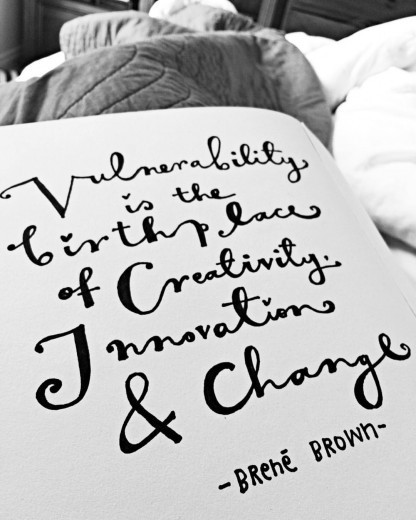 Vulnerability
is the
birthplace
of Creativity.
Innovation
& Change
-BRené BROWN-